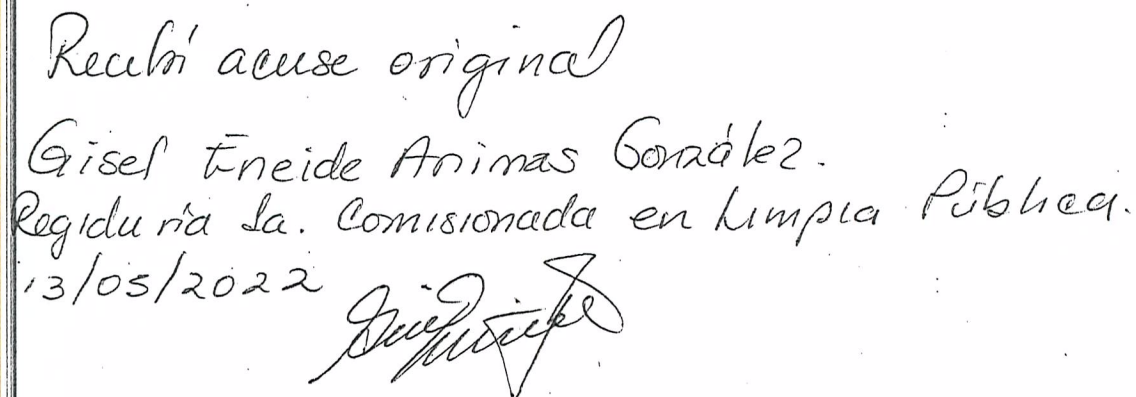 Recibí acuse original
Gisel Eneide Animas González.
Regiduría 2a. Comisionada en Limpia Pública.
13/05/2022